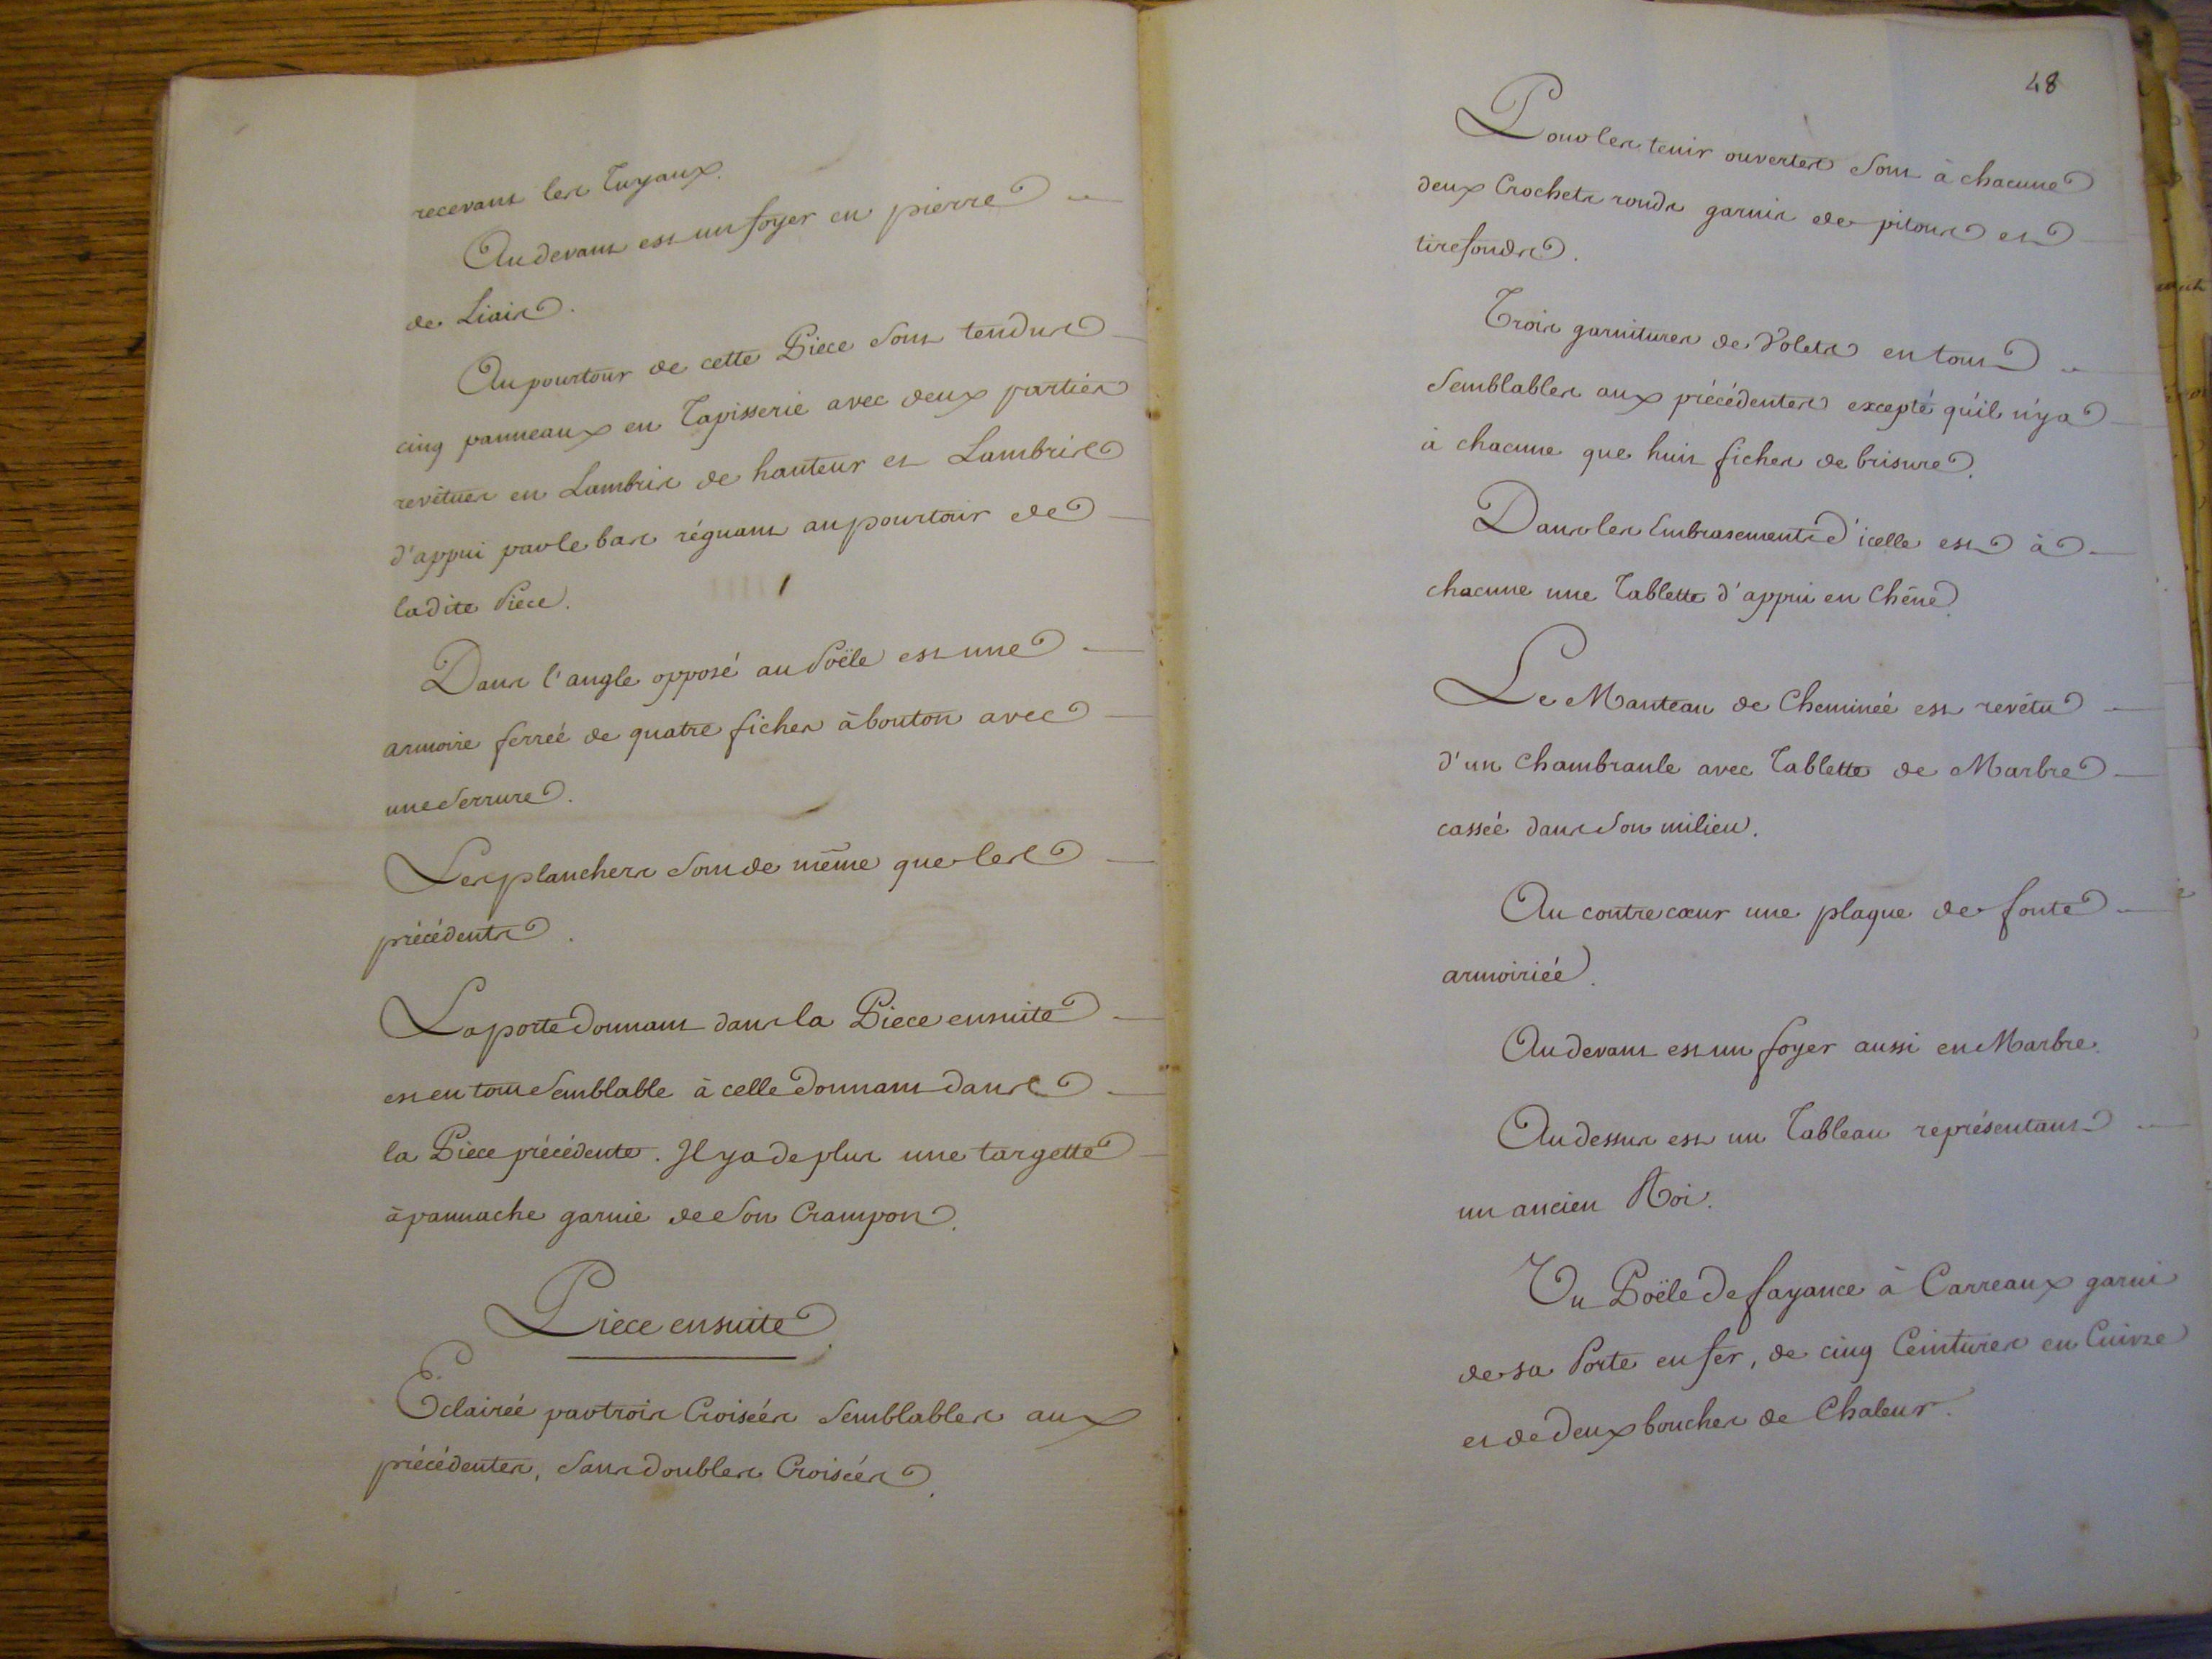 recevant les Tuyaux.
Au devant est un foyer en pierre
de Liais.
Au pourtour de cette Piece sont tendus
cinq panneaux en Tapisserie avec deux parties
revêtues en Lambris de hauteur et Lambris
d'appui par le bas régnant au pourtour de
ladite Piece.
Dans l'angle opposé au Poële est une
armoire ferreé de quatre fiches à bouton avec
une Serrure.
Les planchers sont de même que les
précédents.
La porte donnant dans la Piece ensuite
est en tout Semblable à celle donnant dans
la Piece précédente. Il y a de plus une targette
à pannache garnie de son Crampon.
Piece ensuite.
Eclaireé par trois Croiseés Semblables aux
précédentes, Sans doubles Croiseés.
48
Pour les tenir ouvertes sont à chacune
deux Crochets ronds garnis de pitons et
tirefonds.
Trois garnitures de Volets en tout
Semblables aux précédentes excepté qu'il n'y a
à chacune que huit fiches de brisure.
Dans les Embrasements d'icelle est à
chacune une Tablette d'appui en Chêne.
Le Manteau de Chemineé est revêtu
d'un Chambranle avec Tablette de Marbre
casseé dans son milieu.
Au contre cœur une plaque de fonte
armoirieé.
Au devant est un foyer aussi en Marbre.
Au dessus est un Tableau représentant
un ancien Roi.
Un Poële de fayance à Carreaux garni
de sa Porte en fer, de cinq Ceintures en Cuivre
et de deux bouches de Chaleur.